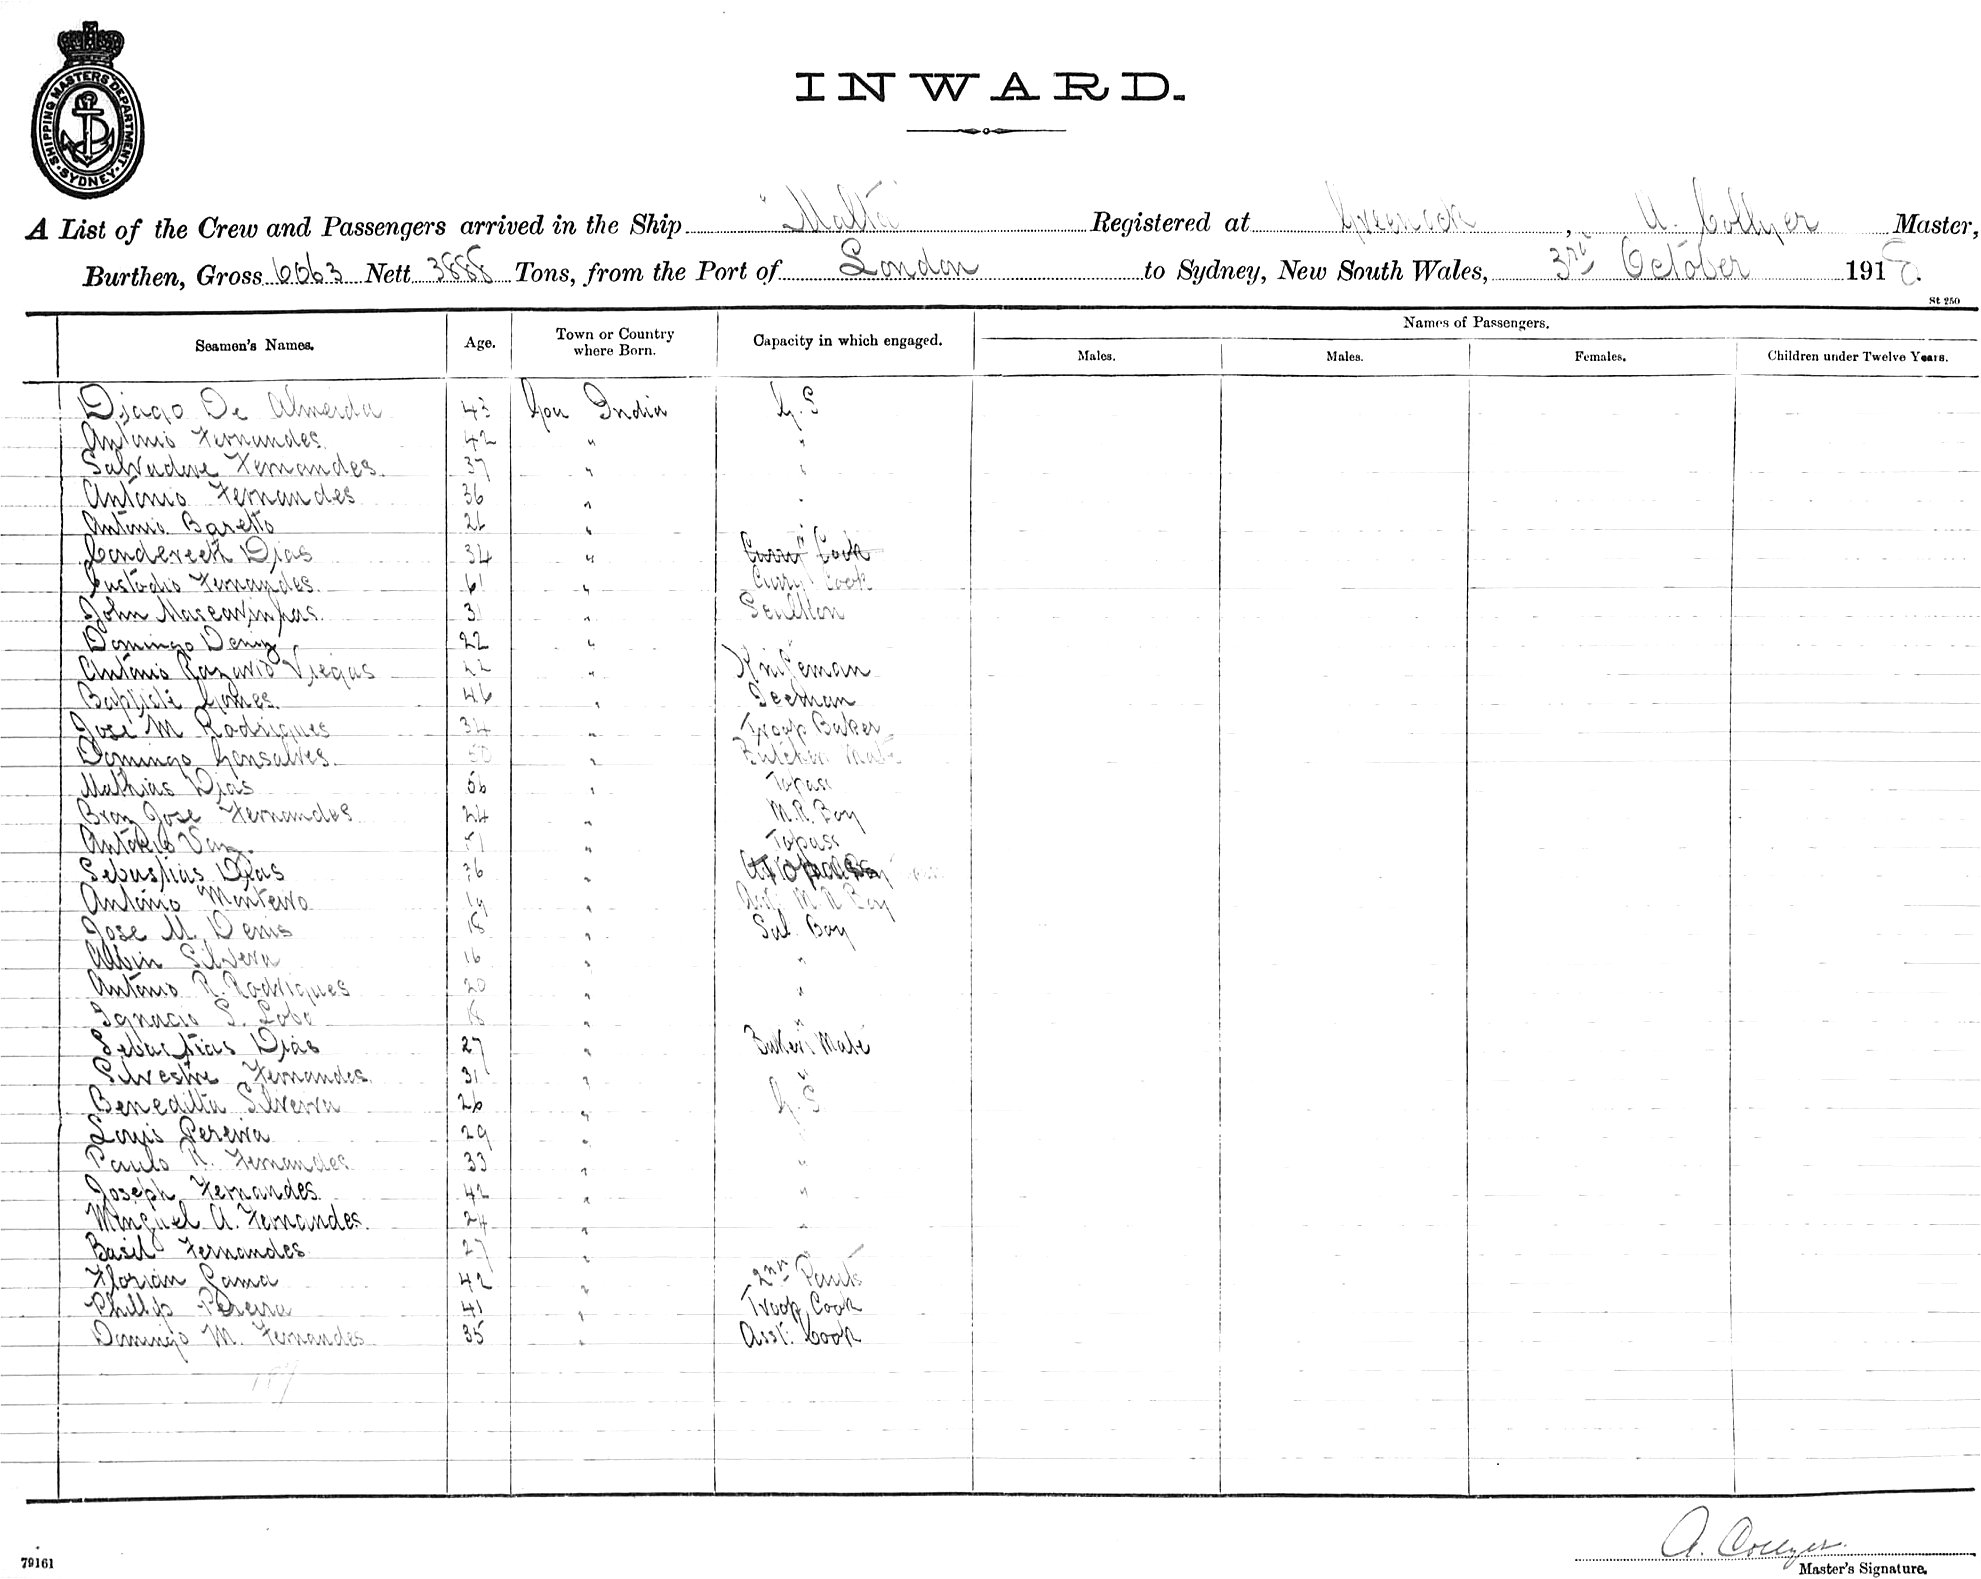 SHIPPING MASTERS DEPARTMENT
SYDNEY
INWARD.
A List of the Crew and Passengers arrived in the Ship "Malta" Registered at Greenock, A. Collyer Master,
Burthen, Gross 6063 Nett 3888 Tons, from the Port of London to Sydney, New South Wales, 3rd October 1918.
St 250
Seamen's Names. Age. Town or Country where Born. Capacity in which engaged. Names of Passengers.
Males. Males. Females. Children under Twelve Years.
Djago De Almeida 43 Goa India G.S
Antonio Fernandes. 42 " "
Salvadore Fernandes. 37 " "
Antonio Fernandes 36 " "
Antonio Baretto 26 " "
Dias 34 " Curry Cook
Custodio Fernandes. 61 " Curry Cook
John Mascarinhas. 31 " Scullion
Domingo Deniz 22 "
Antonio Razario Viegas 22 " Knifeman
Baptiste Gomes. 46 " Iceman
Jose M Rodrigues 34 " Troop Baker
Domingo Gonsalves. 50 " Butchers Mate
Mathias Dias 56 " Topass
Braz Jose Fernandes 24 " M.R. Boy
Antonio Vaz. 51 " Topass
Sebastias Dias 36 "
Antonio Monteiro 19 " Asst. M R Boy
Jose M. Denis 18 " Sal. Boy
Albin Silvera 16 " "
Antonio R. Rodrigues 20 " "
Ignacio S. Lobo 18 " "
Sebastias Dias 27 " Bakers Mate
Silvestre Fernandes. 31 " "
Beneditta Silverra 26 " G.S
Louis Pereira 29 "
Paulo R. Fernandes 33 " "
Joseph Fernandes. 42 " "
Minguel A. Fernandes. 24 " "
Basil Fernandes 27 " "
Florian Gama 42 " 2nd Pants
Phillip Pereira 41 " Troop Cook
Domingo M. Fernandes 35 " Asst. Cook
A. Collyer.
Master's Signature.
79161